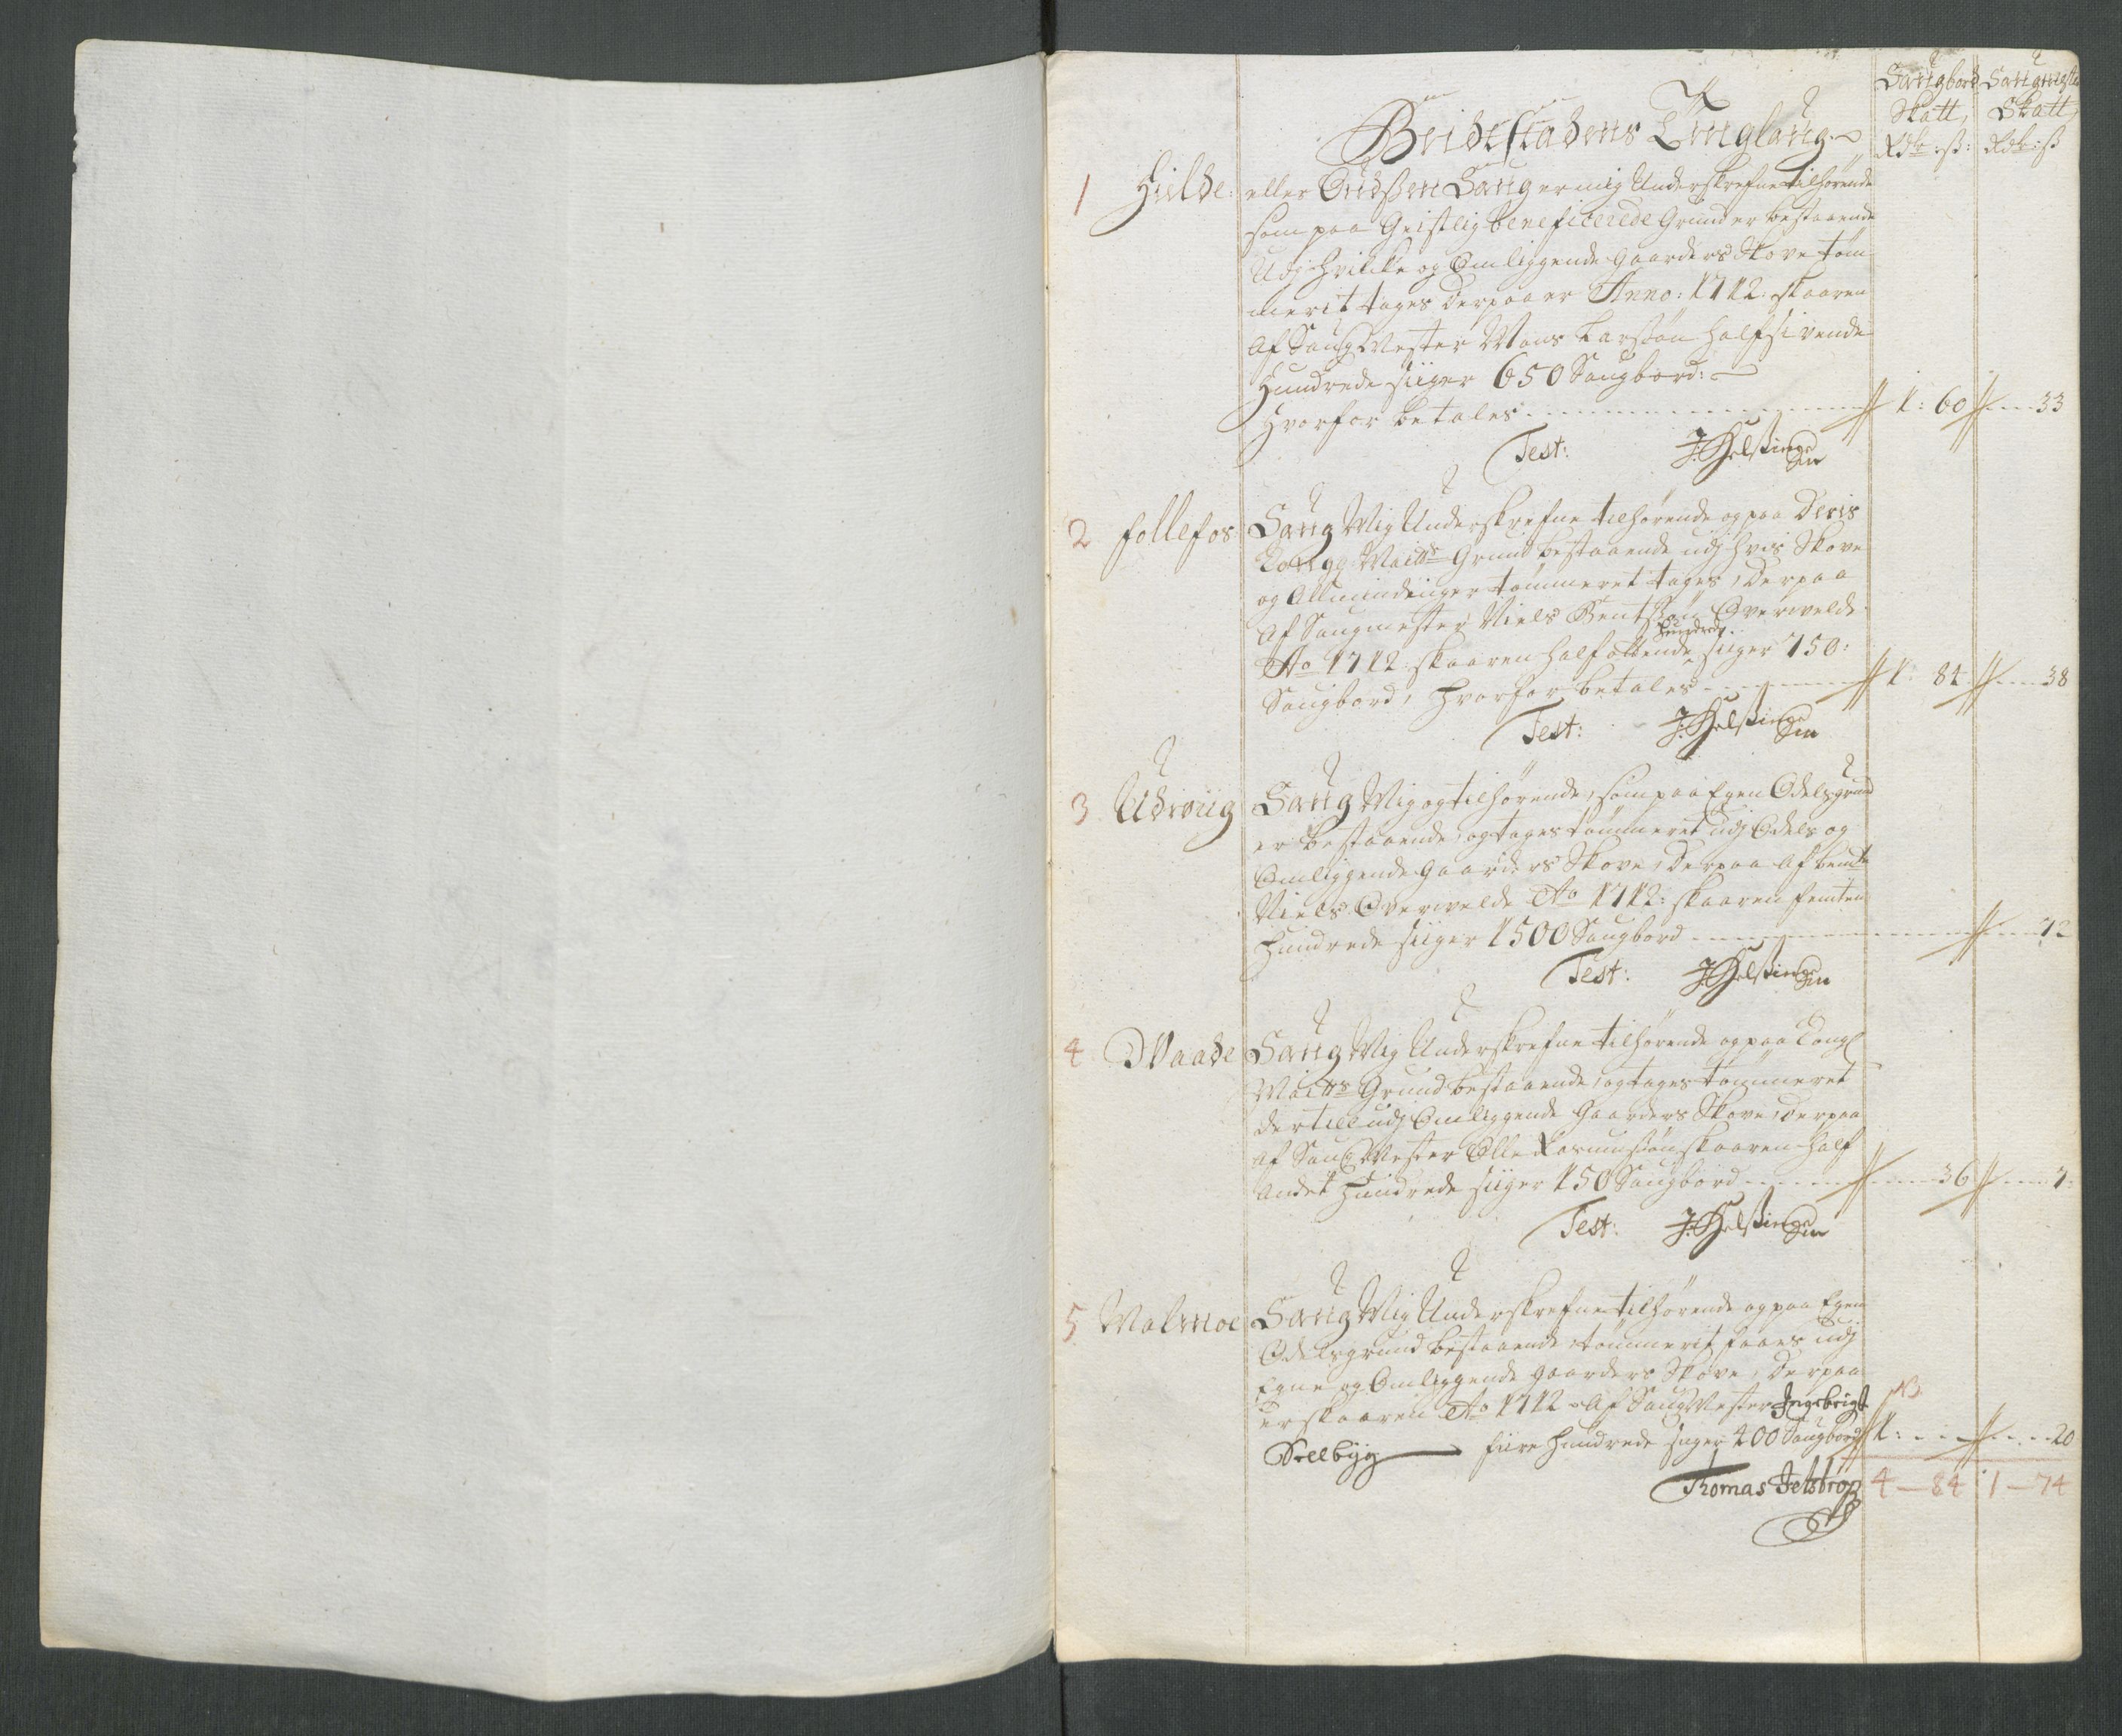 Saugbord Saugmester
Skatt, Skatt,
Rdr: ß: Rdr: ß
Beidestadens Tinglaug
1 Hilde: eller Budßen Saug er mig Underskrefne tilhørende
som paa Geistlig beneficerede Grund er bestaaende
Udj Hvilcke og Omliggende Gaarders Skove tøm-
merit tages derpaa er Anno: 1712: skaaren
Af Saug Mester Mons Larssøn halfsivende
Hundrede siiger 650 Saugbord:
Hvorfor betales 1: 60 33
Test: J. Helßing
2 Follefos Saug Mig Underskrefne tilhørende og paa Deris
Kongg: Maitts Grund bestaaende udj hvis Skove
og Allmindinger tømmeret tages, derpaa
Af Saugmester Niels Bentsøn Overvelde
Ao 1712: skaaren halfottende hundrede siiger 750:
Saugbord, hvorfor betales 1: 84 38
Test: J. Helßing
3 Udvoug Saug Mig og tilhørende, som paa Egen Odelsgrund
er bestaaende, og tages tømmeret udj Odels og
Omliggende Gaarders Skove, derpaa Af bemte
Niels Overvelde Ao 1712: skaaren femten
hundrede siiger 1500 Saugbord 72
Test: J. Helßing
4 Vaade Saug Mig Underskrefne tilhørende og paa Kongl
Maitts Grund bestaaende, og tages tømmeret
dertill udj Omliggende Gaarders Skove, derpaa
af Saug Mester Olle Rasmussøn skaaren half
Andet Hundrede siiger 150 Saugbord 36 7:
Test: J. Helßing
5 Malmoe Saug Mig Underskrefne tilhørende og paa Egen
Odelsgrund bestaaende, tømmerit faaes udj
Egne og Omliggende Gaarders Skove, derpaa
er skaaren Ao 1712 Af Saug Mester Ingebrigt NB
Selbyg fiire hundrede siiger 400 Saugbord 1: 20
Thomas Jelstrop 4 - 84 1 - 74